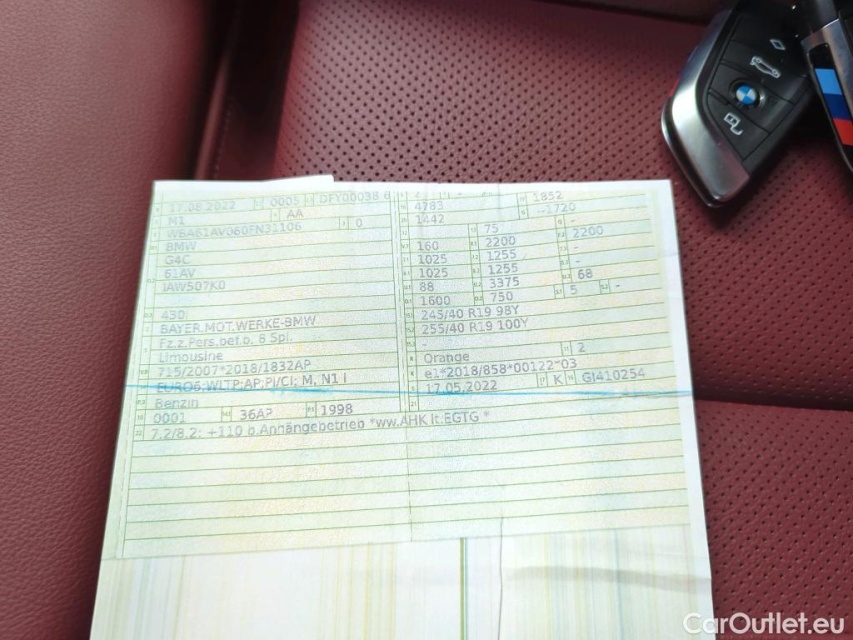 17.08.2022 0005 DFY00038 6
M1 AA
WBA61AV060FN31106 0
BMW
G4C
61AV
IAW507K0
430i
BAYER.MOT.WERKE-BMW
Fz.z.Pers.bef.b. 8 Spl.
Limousine
715/2007*2018/1832AP
EURO6;WLTP;AP;PI/CI; M, N1 I
Benzin
0001 36AP 1998
7.2/8.2: +110 b.Anhängebetrieb *ww.AHK lt.EGTG *
4783 1852
1442 --1720
75 -
160 2200 2200
1025 1255 -
1025 1255 -
88 3375 68
1600 750 5 -
245/40 R19 98Y
255/40 R19 100Y
-
Orange 2
e1*2018/858*00122*03
17.05.2022 K GI410254
CarOutlet.eu